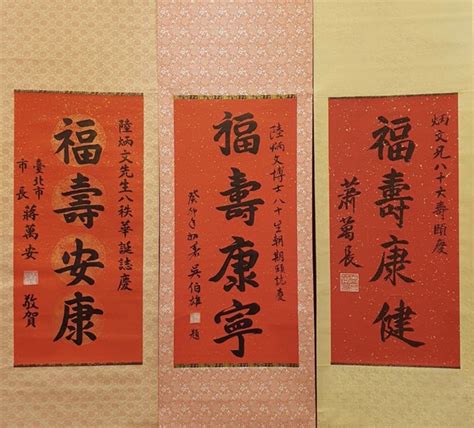 炳文兄八十大壽頤慶
福壽康健
蕭萬長
陸炳文博士八十生朝期頤誌慶
福壽康寧
癸卯年 吳伯雄 題
陸炳文先生八秩華誕誌慶
福壽安康
臺北市
市長 蔣萬安 敬賀